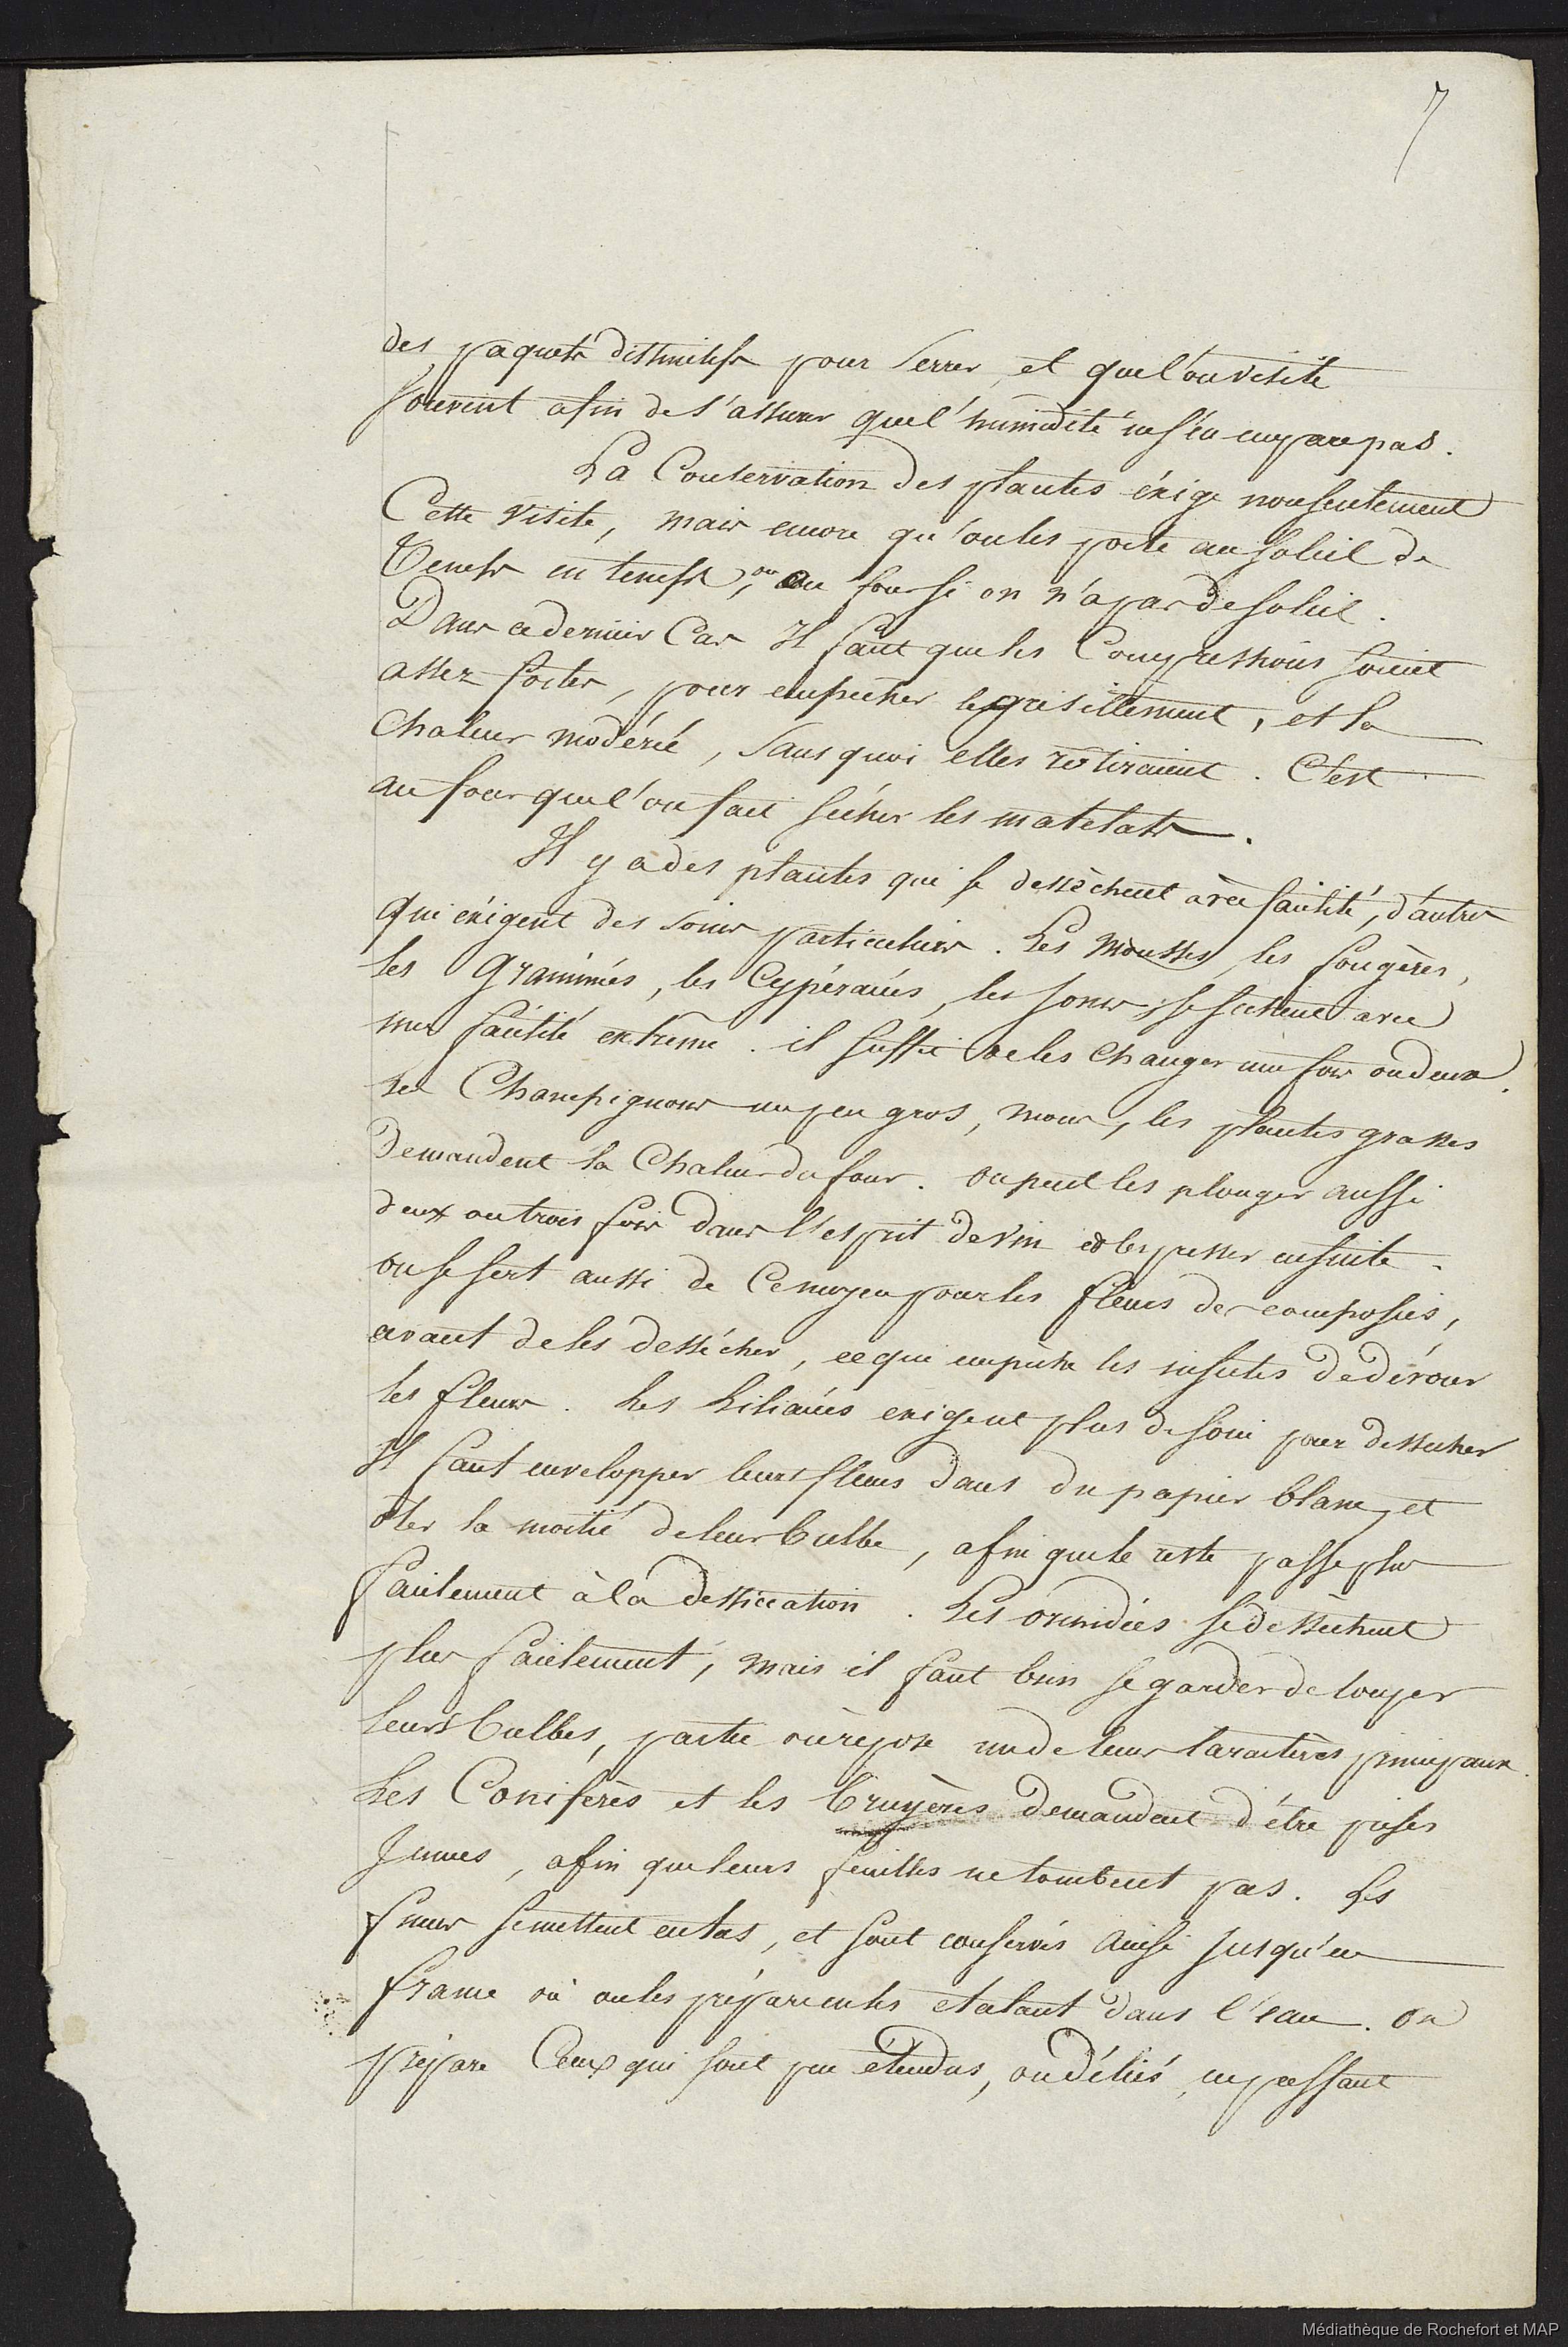 7
des paquets distinctifs pour serrer, et que l'on visite
souvent afin de s'assurer que l'humidité ne s'en empare pas.
La Conservation des plantes éxige non seulement
Cette visite, mais encore qu'on les porte au soleil de
tems en tems, ou au four si on n'a pas de soleil.
Dans ce dernier Cas Il faut que les Compressions soient
assez fortes, pour empêcher le grésillement, et la
Chaleur modérée, sans quoi elles rôtiraient. C'est
au four que l'on fait sécher les matelats.
Il y a des plantes qui se dessèchent avec facilité, d'autres
qui éxigent des soins particuliers. Les mousses, les fougères,
les Graminées, les Cypéracées, les joncs, se sechent avec
une facilité extreme. il suffit de les changer une fois ou deux.
Les Champignons un peu gros, mous, les plantes grasses
demandent la Chaleur du four. On peut les plonger aussi
deux ou trois fois dans l'esprit de vin et les presser ensuite.
On se sert aussi de Ce moyen pour les fleurs des composées,
avant de les dessécher, ce qui empêche les insectes de dévorer
les fleurs. Les Liliacées exigent plus de soin pour dessecher
Il faut envelopper leurs fleurs dans du papier blanc, et
ôter la moitié de leur bulbe, afin que le reste passe plus
facilement à la dessiccation. Les orchidées se dessèchent
plus facilement, mais il faut bien se garder de couper
leurs bulbes, partie où repose un de leurs Caractères principaux.
Les Conifères et les bruyères demandent d'être prises
Jeunes, afin que leurs feuilles ne tombent pas. Les
fucus se mettent en tas, et sont conservés ainsi jusqu'en
france où on les prépare en les étalant dans l'eau. On
prépare Ceux qui sont peu étendus, ou déliés, en pressant
Médiathèque de Rochefort et MAP